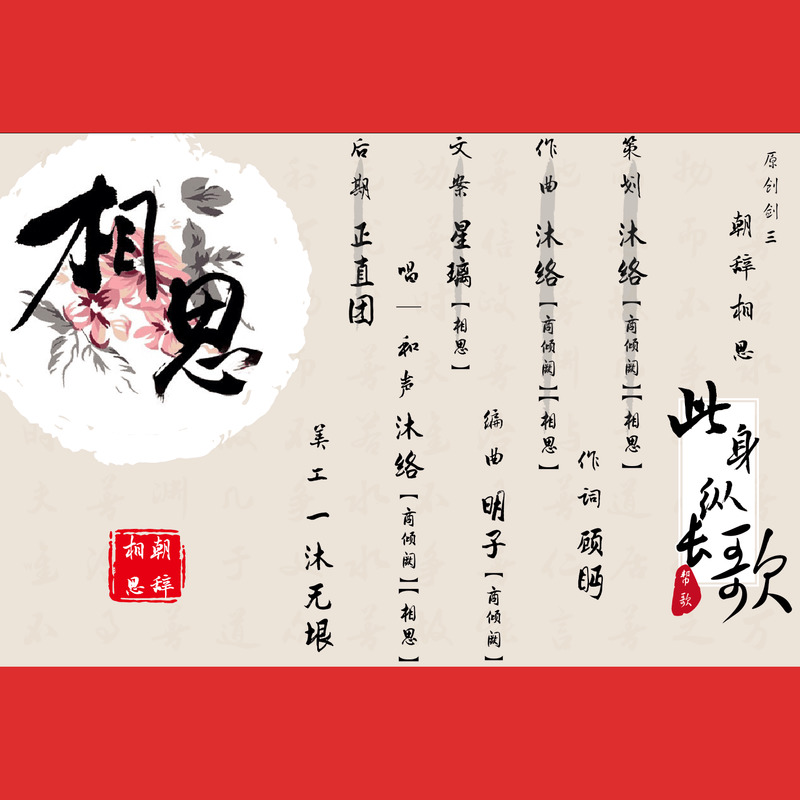 原创剑三
朝辞相思
此身纵长歌
帮歌
策划 沐络【商倾阙】【相思】
作词 顾眄
作曲 沐络【商倾阙】【相思】
编曲 明子【商倾阙】
文案 星璃【相思】
唱—和声 沐络【商倾阙】【相思】
后期 正直团
美工—沐无垠
相思
朝辞
相思